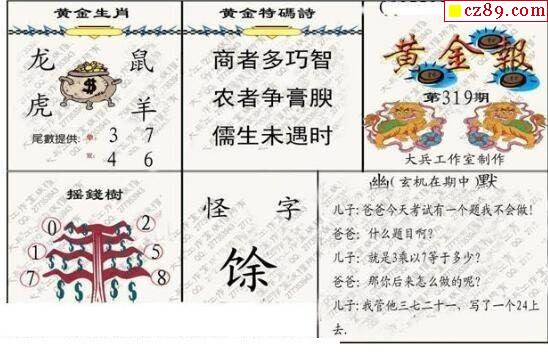 cz89.com
黄金生肖
龙 鼠
虎 羊
尾數提供: 單: 3 7
雙: 4 6
黄金特碼詩
商者多巧智
农者争膏腴
儒生未遇时
黄金報
第319期
大兵工作室制作
摇錢樹
0 2
1 5
7 8
怪字
馀
幽(玄机在期中)默
儿子:爸爸今天考试有一个题我不会做!
爸爸: 什么题目啊?
儿子: 就是3乘以7等于多少?
爸爸: 那你后来怎么做的呢?
儿子:我管他三七二十一，写了一个24上
去.